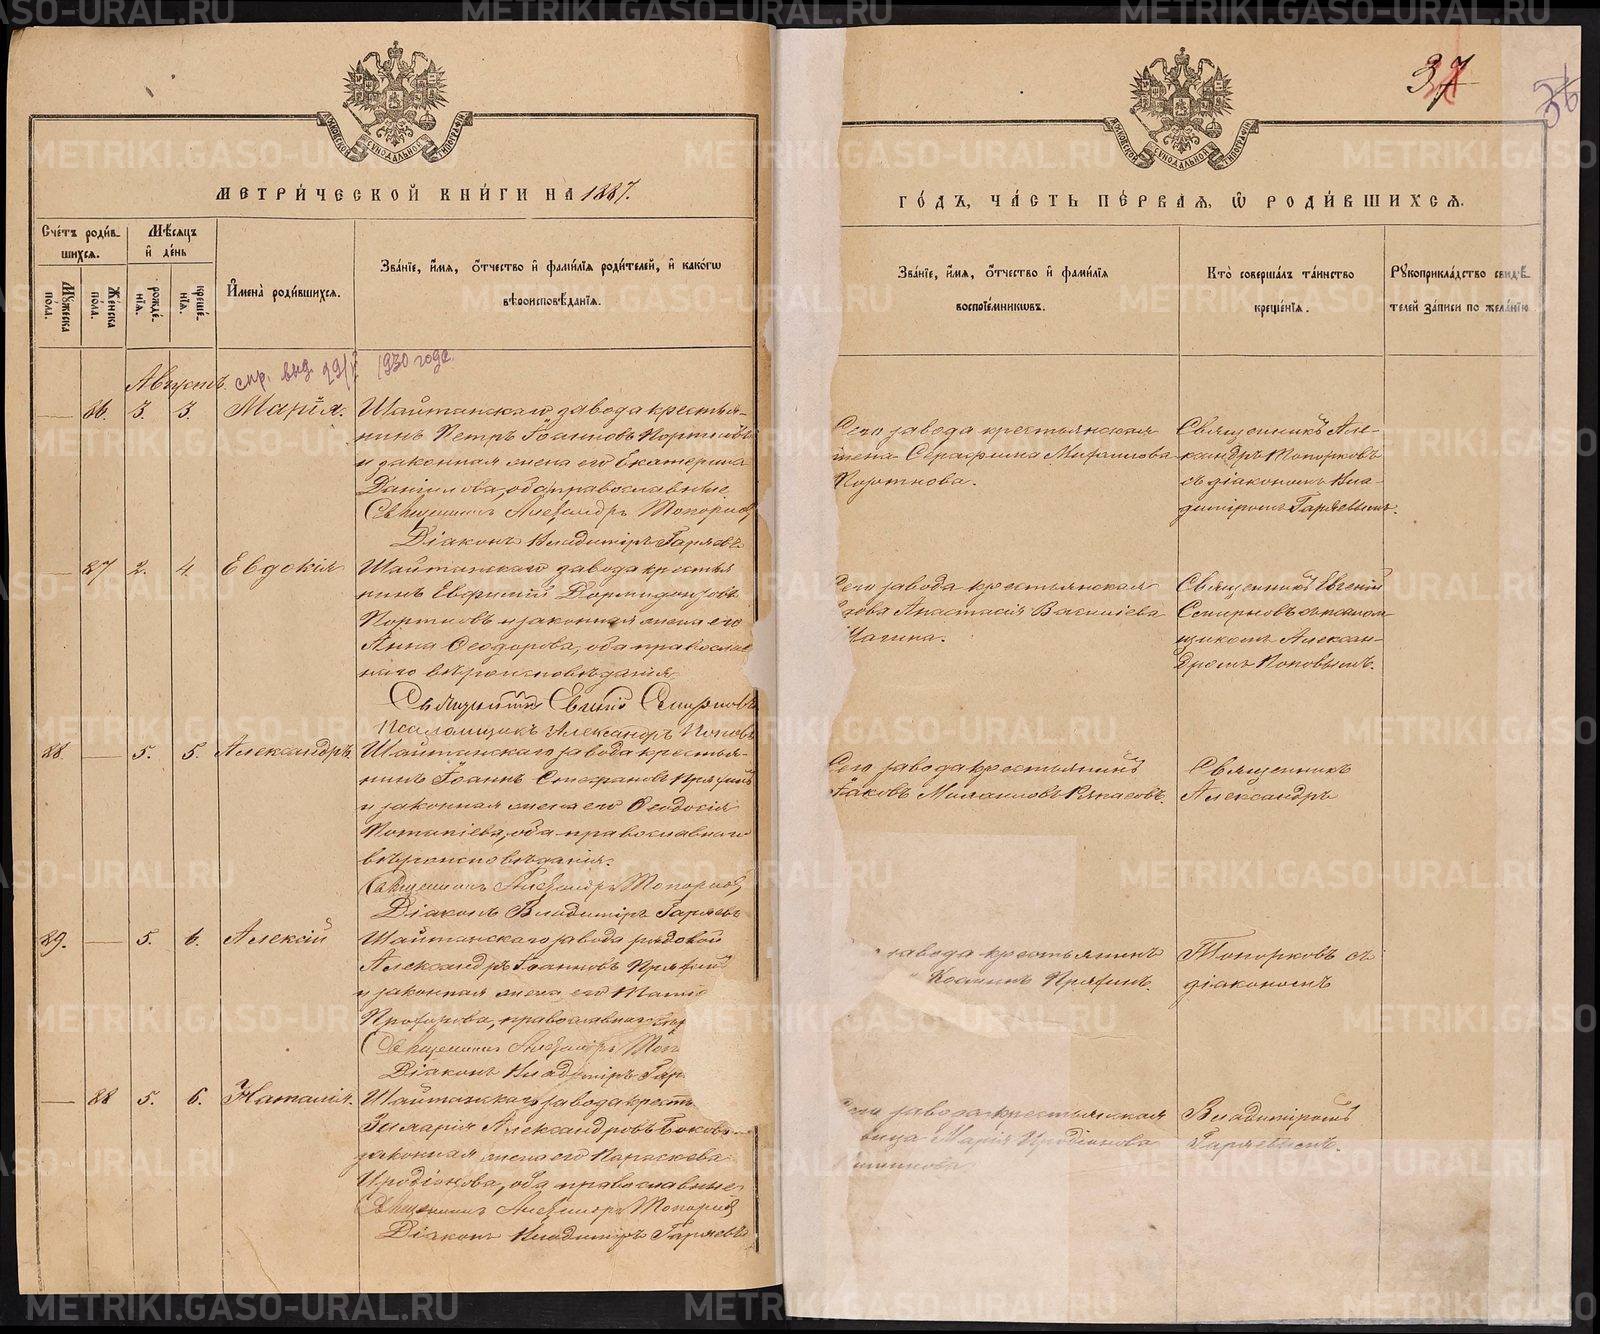 37
36
МЕТРИ́ЧЕСКОЙ КНИ́ГИ НА 1887.
ГО́ДЪ, ЧА́СТЬ ПЕ́РВАЯ, Ѽ РОДИ́ВШИХСЯ.
Сче́тъ роди́вшихся.
Мѣ́сяцъ и де́нь
Му́жеска по́ла.
Же́нска по́ла.
рожде́нїя.
креще́нїя.
И҆мена̀ роди́вшихся.
Зва́нїе, и҆́мя, ѻ҆́тчество и҆ фами́лїя роди́телей, и҆ како́гѡ
вѣроисповѣ́данїя.
Зва́нїе, и҆́мя, ѻ҆́тчество и҆ фами́лїя
воспрїе́мникѡвъ.
Кто̀ соверша́лъ та́инство
креще́нїя.
Рꙋкоприкла́дство свидѣ́телей за́писи по жела́нїю
Августъ. спр. выд. 1930 года.
86. 3. 3. Марія.
Шайтанскаго завода крестья-
нинъ Петръ Іоанновъ
и законная жена его Екатерина
Данилова, оба православные
Священникъ Александръ Топорков
Діаконъ Владиміръ Гаряевъ
Сего завода крестьянская
жена Серафима
Коротнова.
Священникъ Але-
ксандръ Топорковъ
съ діакономъ Вла-
диміромъ Гаряевымъ.
87 2. 4. Евдокія
Шайтанскаго завода крестья
нинъ Евфимій Дормидонтовъ
Портновъ и законная жена его
Анна Ѳеодорова, оба православ
наго вѣроисповѣданія
Священникъ Евгеній Смирновъ
Псаломщикъ Александръ Поповъ
Сего завода крестьянская
вдова Анастасія Василіева
Священникъ Евгеній
Смирновъ съ псалом
щикомъ Алексан-
дромъ Поповымъ.
88. 5. 5. Александръ
Шайтанскаго завода крестья-
нинъ Іоаннъ Стефановъ
и законная жена его Ѳеодосія
Потапіева, оба православнаго
вѣроисповѣданія.
Священникъ Александръ Топорков
Діаконъ Владиміръ Гаряевъ
Сего завода крестьянинъ
Іаковъ
Священникъ
Александръ
89. 5. 6. Алексій
Шайтанскаго завода рядовой
Александръ Іоанновъ
и законная жена его
Прохорова, православнаго вѣр
Священникъ Александръ Топ
Діаконъ Владиміръ Гар
завода крестьянинъ
Топорковъ съ
діакономъ
88 5. 6. Наталія.
Шайтанскаго завода крест
Захарія Александровъ Боковъ
законная жена его Параскева
Иродіонова, оба православные
Священникъ Александръ Топорков
Діаконъ Владиміръ Гаряевъ
Сего завода крестьянская
Марія Иродіонова
Владиміромъ
Гаряевымъ.
METRIKI.GASO-URAL.RU